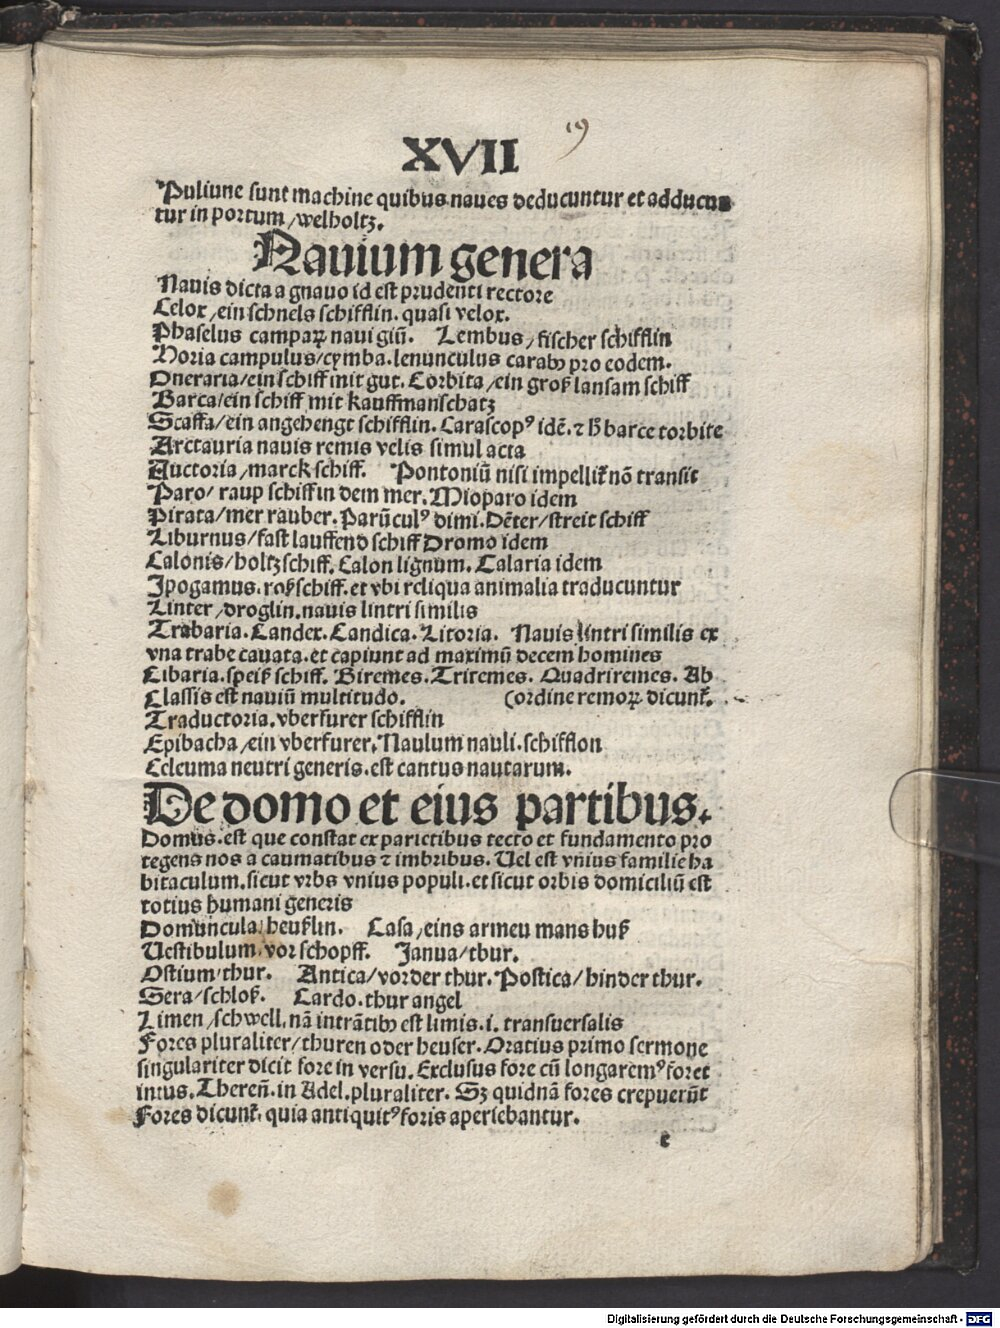 19
XVII
Puliune sunt machine quibus naues deducuntur et adducu
tur in portum/welholtz.
Nauium genera
Nauis dicta a gnauo id est prudenti rectore
Celox/ein schnels schifflin. quasi velox.
Phaselus campaꝝ naui giũ. Lembus/fischer schifflin
Horia campulus/cymba.lenunculus carabꝰ pro eodem.
Oneraria/ein schiff mit gut. Corbita/ein groß lansam schiff
Barca/ein schiff mit kauffmanschatz
Scaffa/ein angehengt schifflin. Carascopꝰ idẽ. ⁊ barce corbite
Arctauria nauis remis velis simul acta
Auctoria/marck schiff. Pontoniũ nisi impellit nõ transit
Paro/raup schiff in dem mer. Mioparo idem
Pirata/mer rauber. Parũculꝰ dimi. Dẽter/streit schiff
Liburnus/fast lauffend schiff Dromo idem
Calonis/holtz schiff. Calon lignum. Calaria idem
Ipogamus. roß schiff. et vbi reliqua animalia traducuntur
Linter/droglin. nauis lintri similis
Trabaria. Caudex. Caudica. Litoria. Nauis lintri similis ex
vna trabe cauata. et capiunt ad maximũ decem homines
Cibaria. speiß schiff. Biremes. Triremes. Quadriremes. Ab
Classis est nauiũ multitudo. (ordine remoꝝ dicunt̃.
Traductoria. vberfurer schifflin
Epibacha/ein vberfurer. Naulum nauli. schifflon
Celeuma neutri generis. est cantus nautarum.
De domo et eius partibus.
Domus. est que constat ex parietibus tecto et fundamento pro
tegens nos a caumatibus ⁊ imbribus. Uel est vnius familie ha
bitaculum. sicut vrbs vnius populi. et sicut orbis domiciliũ est
totius humani generis
Domuncula/heußlin. Casa/eins armeu mans huß
Uestibulum/vor schopff. Janua/thur.
Ostium/thur. Antica/vorder thur. Postica/hinder thur.
Sera/schloß. Cardo. thur angel
Limen/schwell. nã intrãtibꝰ est limis. i. transuersalis
Fores pluraliter/thuren oder heuser. Oratius primo sermone
singulariter dicit fore in versu. Exclusus fore cũ longaremꝰ foret
intus. Thereñ. in Adel. pluraliter. Sꝫ quidnã fores crepuerũt
Fores dicunt̃. quia antiquitꝰ foris aperiebantur.
c
Digitalisierung gefördert durch die Deutsche Forschungsgemeinschaft - DFG